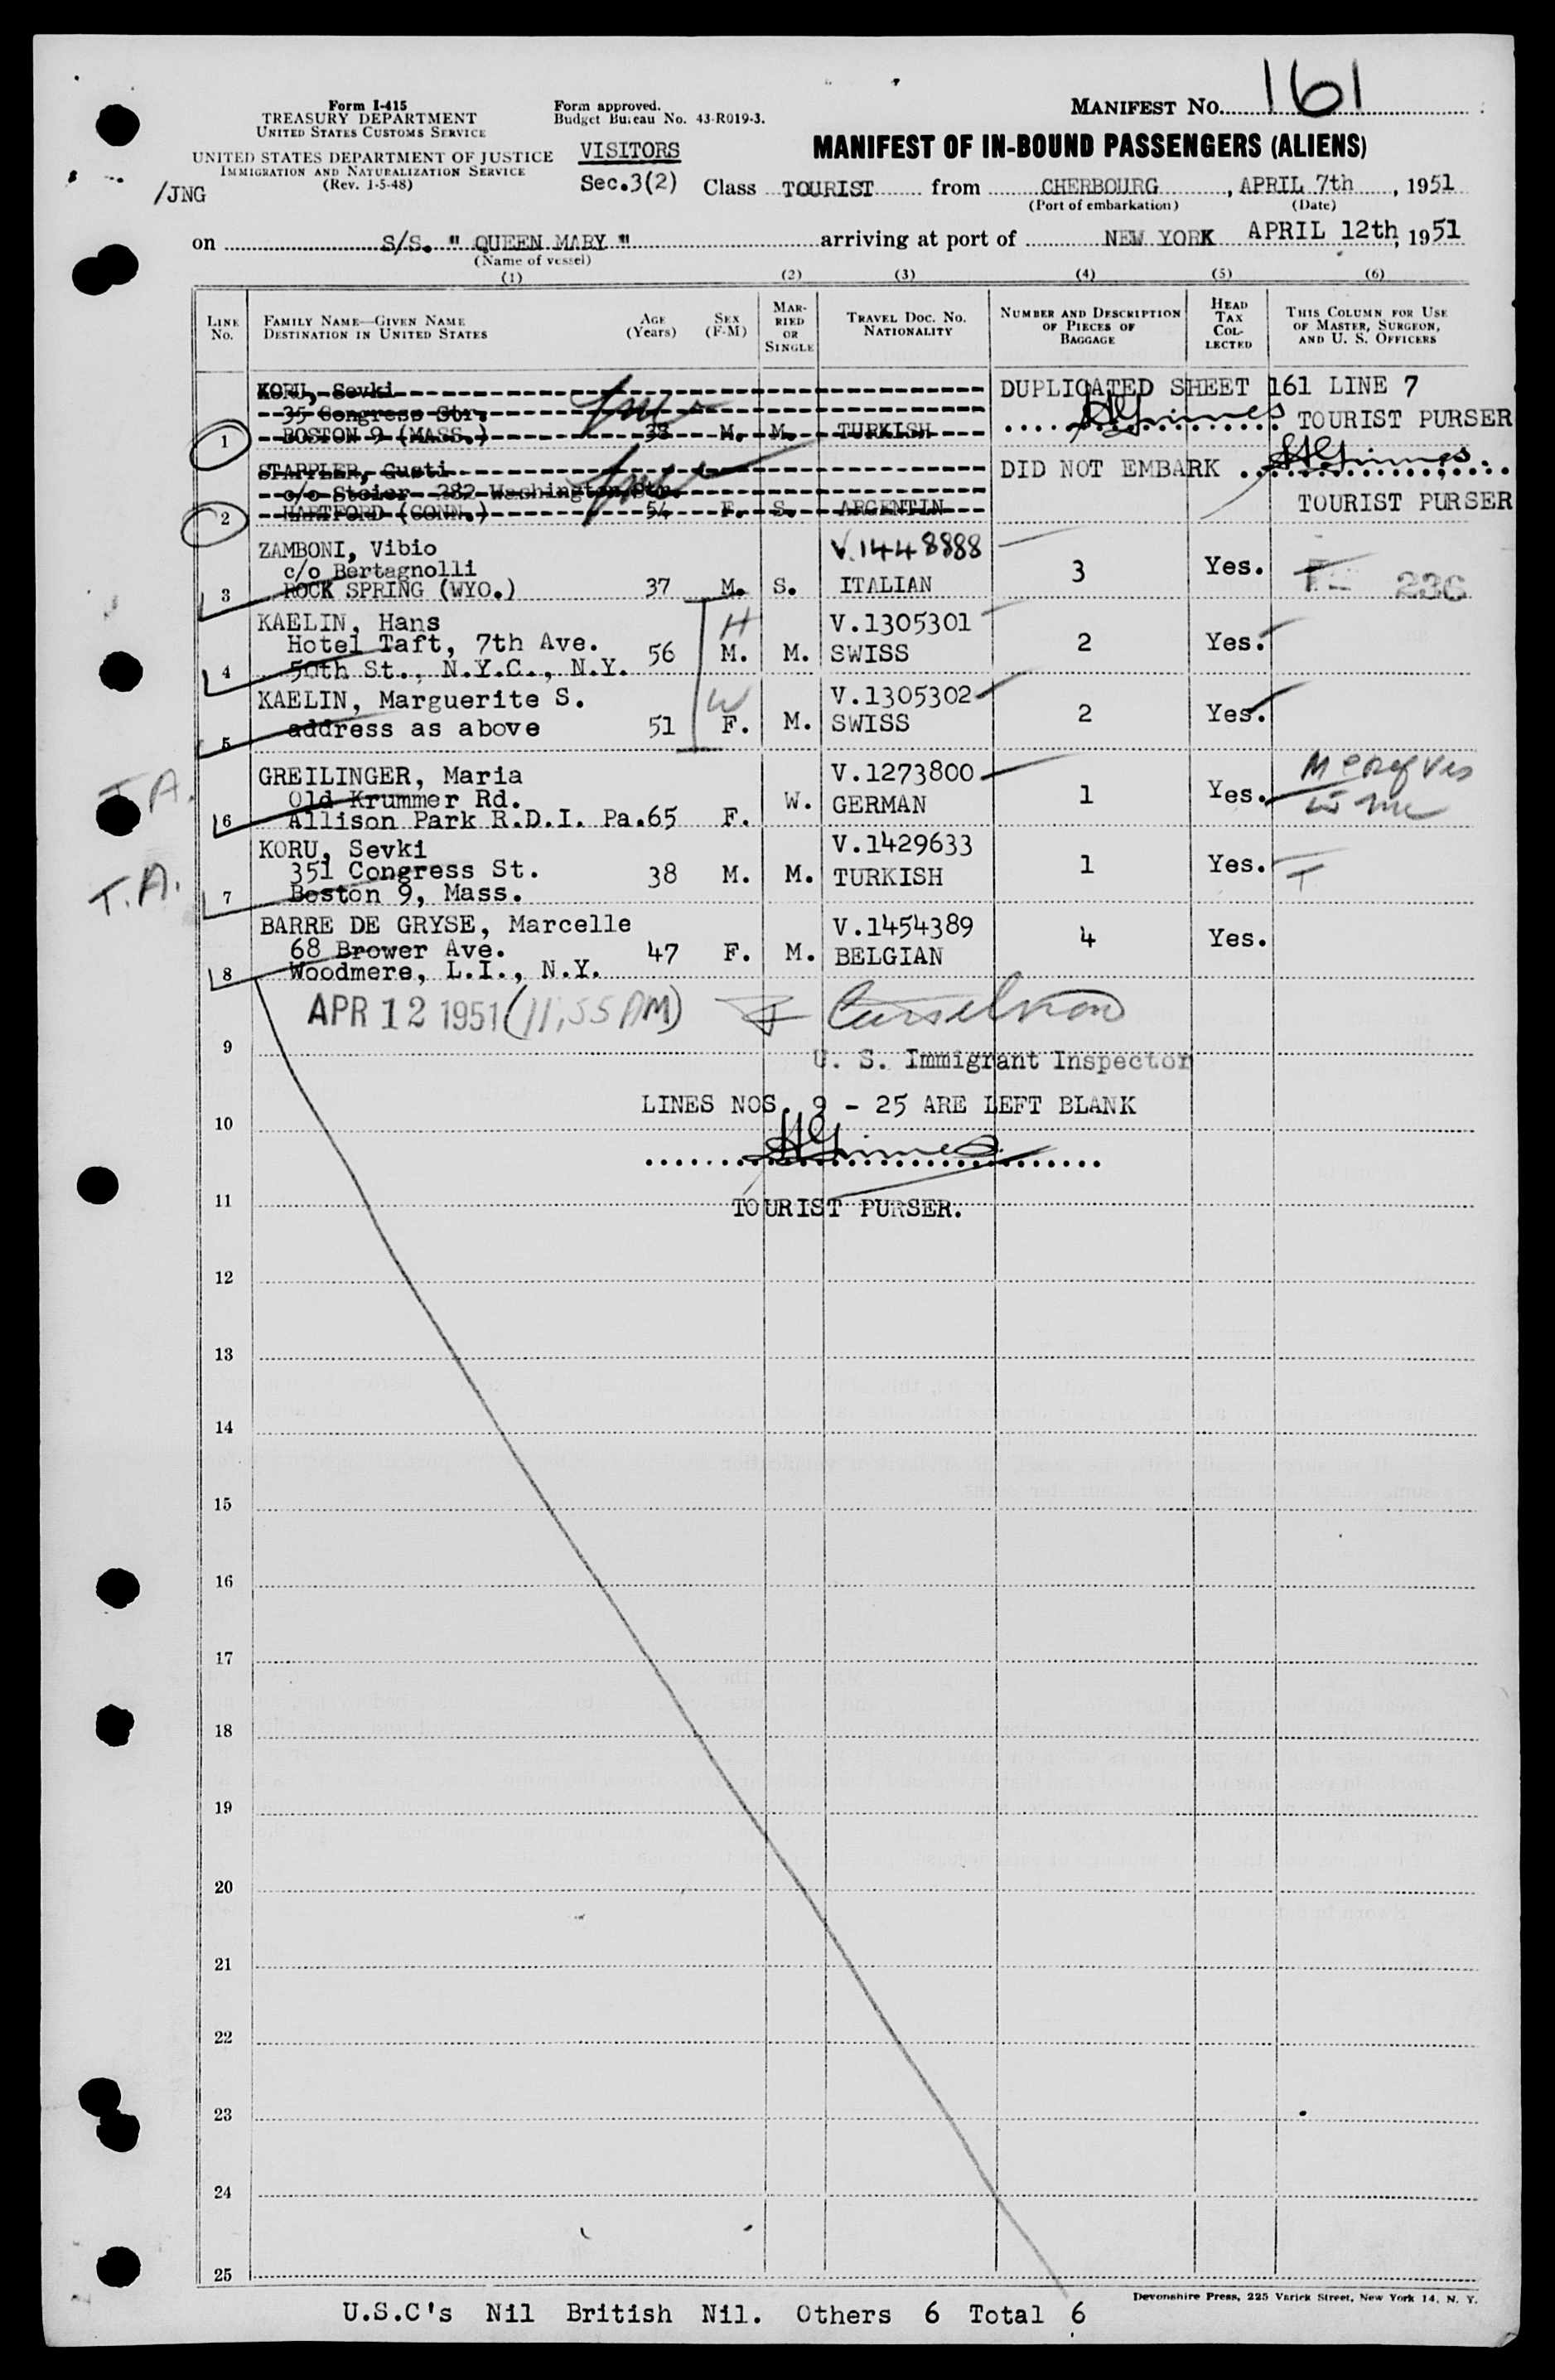 Form I-415
TREASURY DEPARTMENT
UNITED STATES CUSTOMS SERVICE
UNITED STATES DEPARTMENT OF JUSTICE
IMMIGRATION AND NATURALIZATION SERVICE
(Rev. 1-5-48)
/JNG
Form approved.
Budget Bureau No. 43-R019-3.
VISITORS
Sec.3(2)
MANIFEST NO. 161
MANIFEST OF IN-BOUND PASSENGERS (ALIENS)
Class TOURIST from CHERBOURG, APRIL 7th, 1951
(Port of embarkation) (Date)
on S/S. " QUEEN MARY " arriving at port of NEW YORK APRIL 12th, 1951
(Name of vessel)
(1) (2) (3) (4) (5) (6)
LINE NO.
FAMILY NAME—GIVEN NAME
DESTINATION IN UNITED STATES
AGE (Years)
SEX (F-M)
MARRIED OR SINGLE
TRAVEL DOC. NO. NATIONALITY
NUMBER AND DESCRIPTION OF PIECES OF BAGGAGE
HEAD TAX COLLECTED
THIS COLUMN FOR USE OF MASTER, SURGEON, AND U. S. OFFICERS
KORU, Sevki DUPLICATED SHEET 161 LINE 7
35 Congress Str. HGrimes TOURIST PURSER
1 BOSTON 9 (MASS.) 38 M. M. TURKISH
STAPPLER, Gusti DID NOT EMBARK HGrimes
c/o Steier 282 Washington Str.
2 HARTFORD (CONN.) 54 F. S. ARGENTIN TOURIST PURSER
ZAMBONI, Vibio V.1448888
c/o Bertagnolli 3 Yes.
3 ROCK SPRING (WYO.) 37 M. S. ITALIAN 236
KAELIN, Hans H V.1305301
Hotel Taft, 7th Ave. 56 M. M. SWISS 2 Yes.
4 50th St., N.Y.C., N.Y.
KAELIN, Marguerite S. W V.1305302
5 address as above 51 F. M. SWISS 2 Yes.
T.A.
GREILINGER, Maria V.1273800
Old Krummer Rd. W. GERMAN 1 Yes.
6 Allison Park R.D.I. Pa. 65 F.
T.A.
KORU, Sevki V.1429633
351 Congress St. 38 M. M. TURKISH 1 Yes. T
7 Boston 9, Mass.
BARRE DE GRYSE, Marcelle V.1454389
68 Brower Ave. 47 F. M. BELGIAN 4 Yes.
8 Woodmere, L.I., N.Y.
APR 12 1951 (11,55 AM)
9 U. S. Immigrant Inspector
LINES NOS. 9 - 25 ARE LEFT BLANK
10
HGrimes
11 TOURIST PURSER.
12
13
14
15
16
17
18
19
20
21
22
23
24
25
Devonshire Press, 225 Varick Street, New York 14, N. Y.
U.S.C's Nil British Nil. Others 6 Total 6